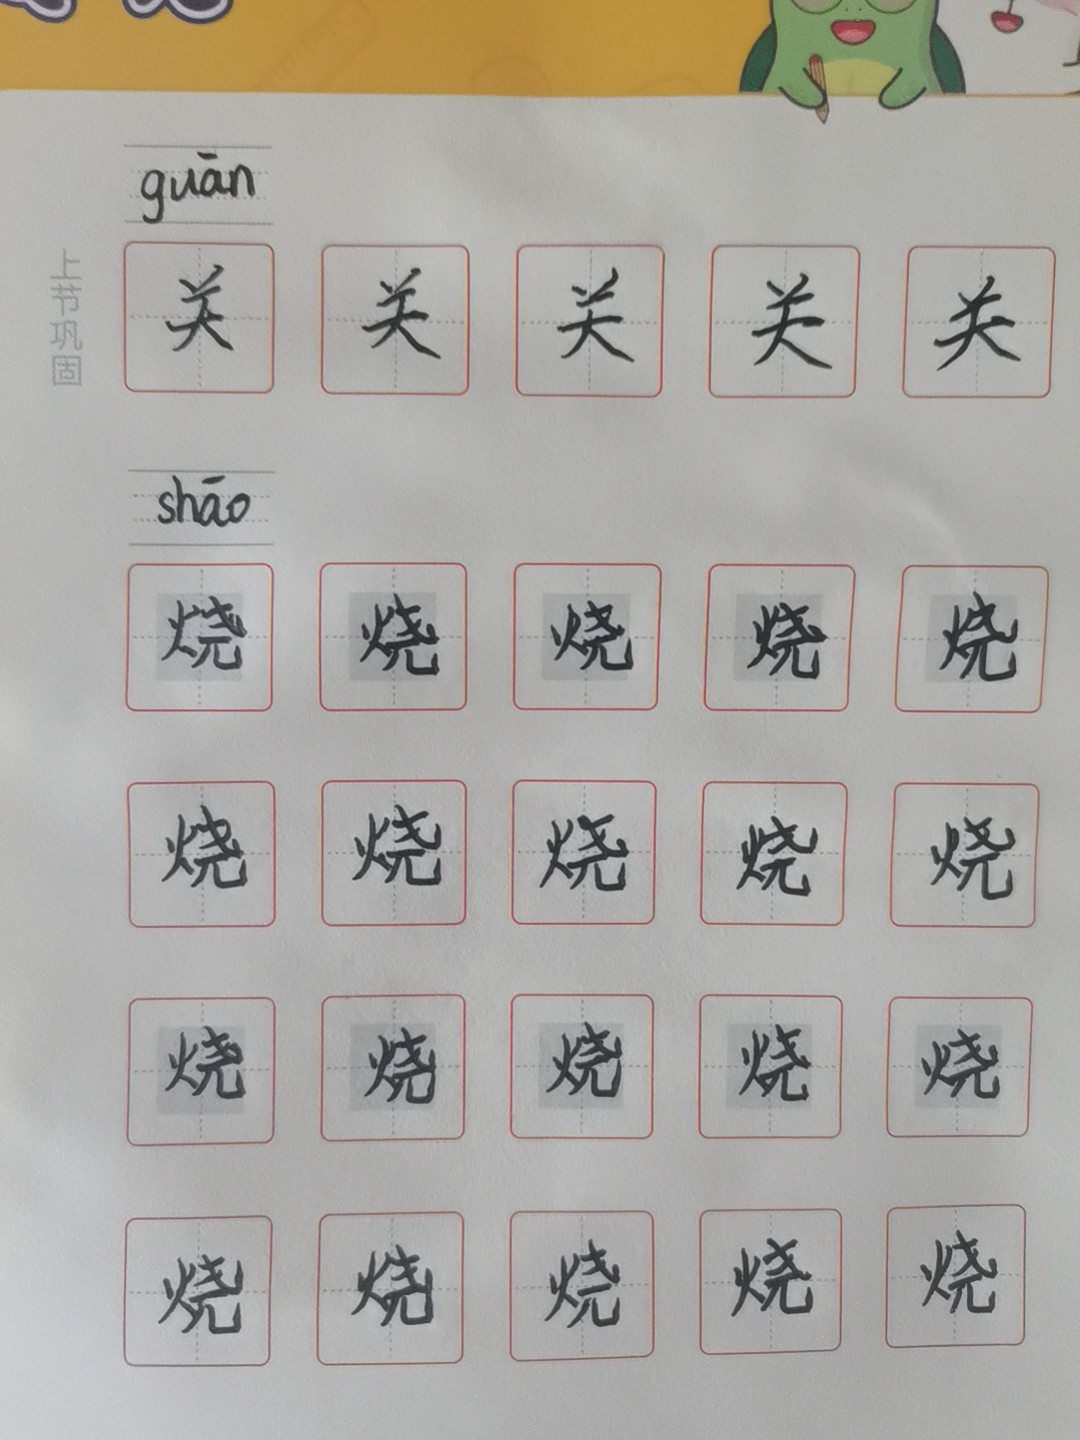 guān
上节巩固
关 关 关 关 关
shāo
烧 烧 烧 烧 烧
烧 烧 烧 烧 烧
烧 烧 烧 烧 烧
烧 烧 烧 烧 烧